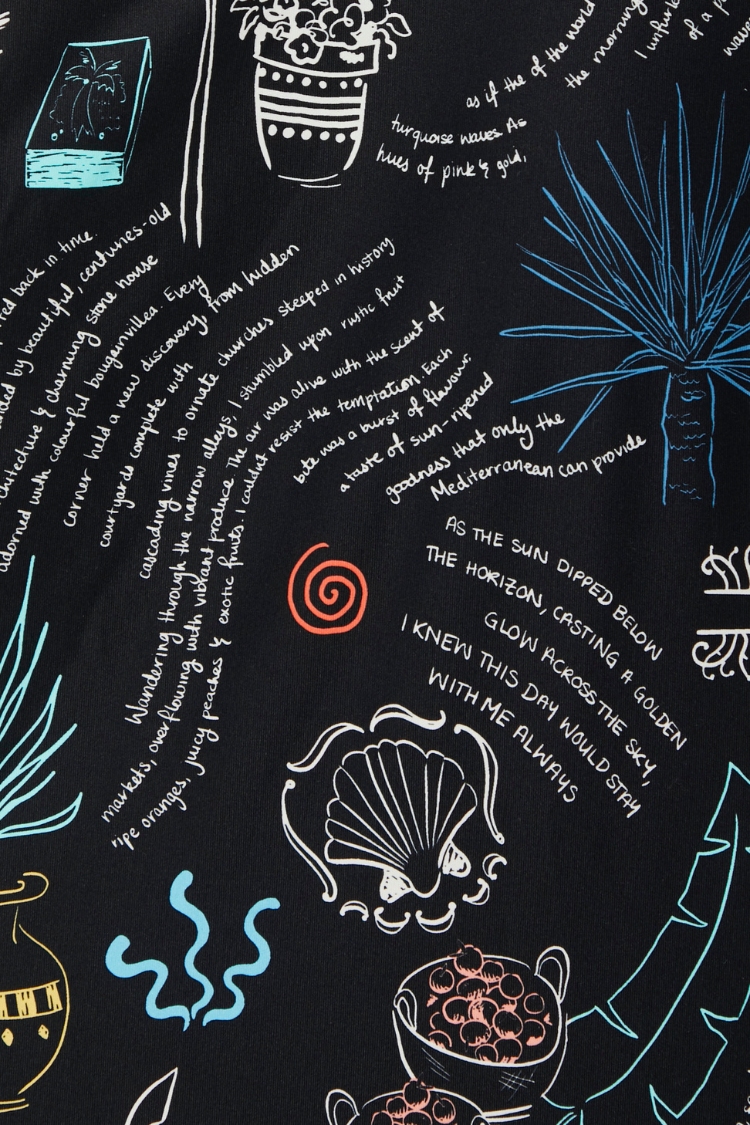 of a
the morning
as if the of the world
turquoise waves. As
hues of pink & gold,
back in time.
by beautiful, centuries-old
& charming stone house
adorned with colourful bougainvillea. Every
corner held a new discovery, from hidden
courtyards complete with
cascading vines to ornate churches steeped in history
Wandering through the narrow alleys, I stumbled upon rustic fruit
markets, overflowing with vibrant produce The air was alive with the scent of
ripe oranges, juicy peaches & exotic fruits. I couldn't resist the temptation. Each
bite was a burst of flavour.
a taste of sun-ripened
goodness that only the
Mediterranean can provide
AS THE SUN DIPPED BELOW
THE HORIZON, CASTING A GOLDEN
GLOW ACROSS THE SKY,
I KNEW THIS DAY WOULD STAY
WITH ME ALWAYS